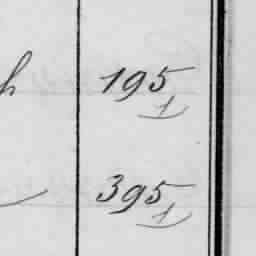 h 195
1
395
1